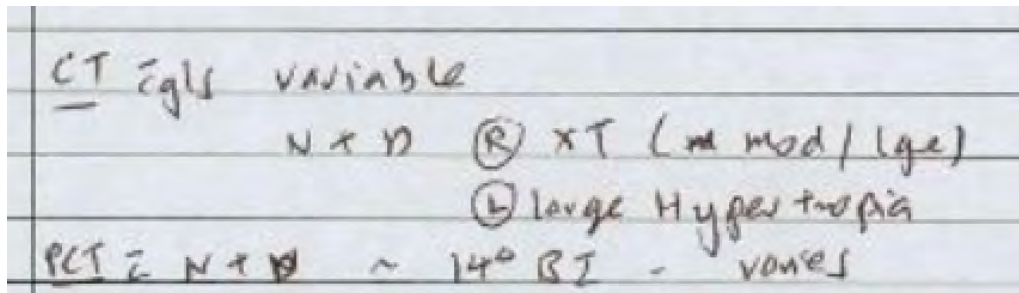 CT c̄ gls variable
N + D Ⓡ XT (mod / lge)
Ⓛ large Hypertropia
PCT c̄ N + D ~ 14° BI - varies